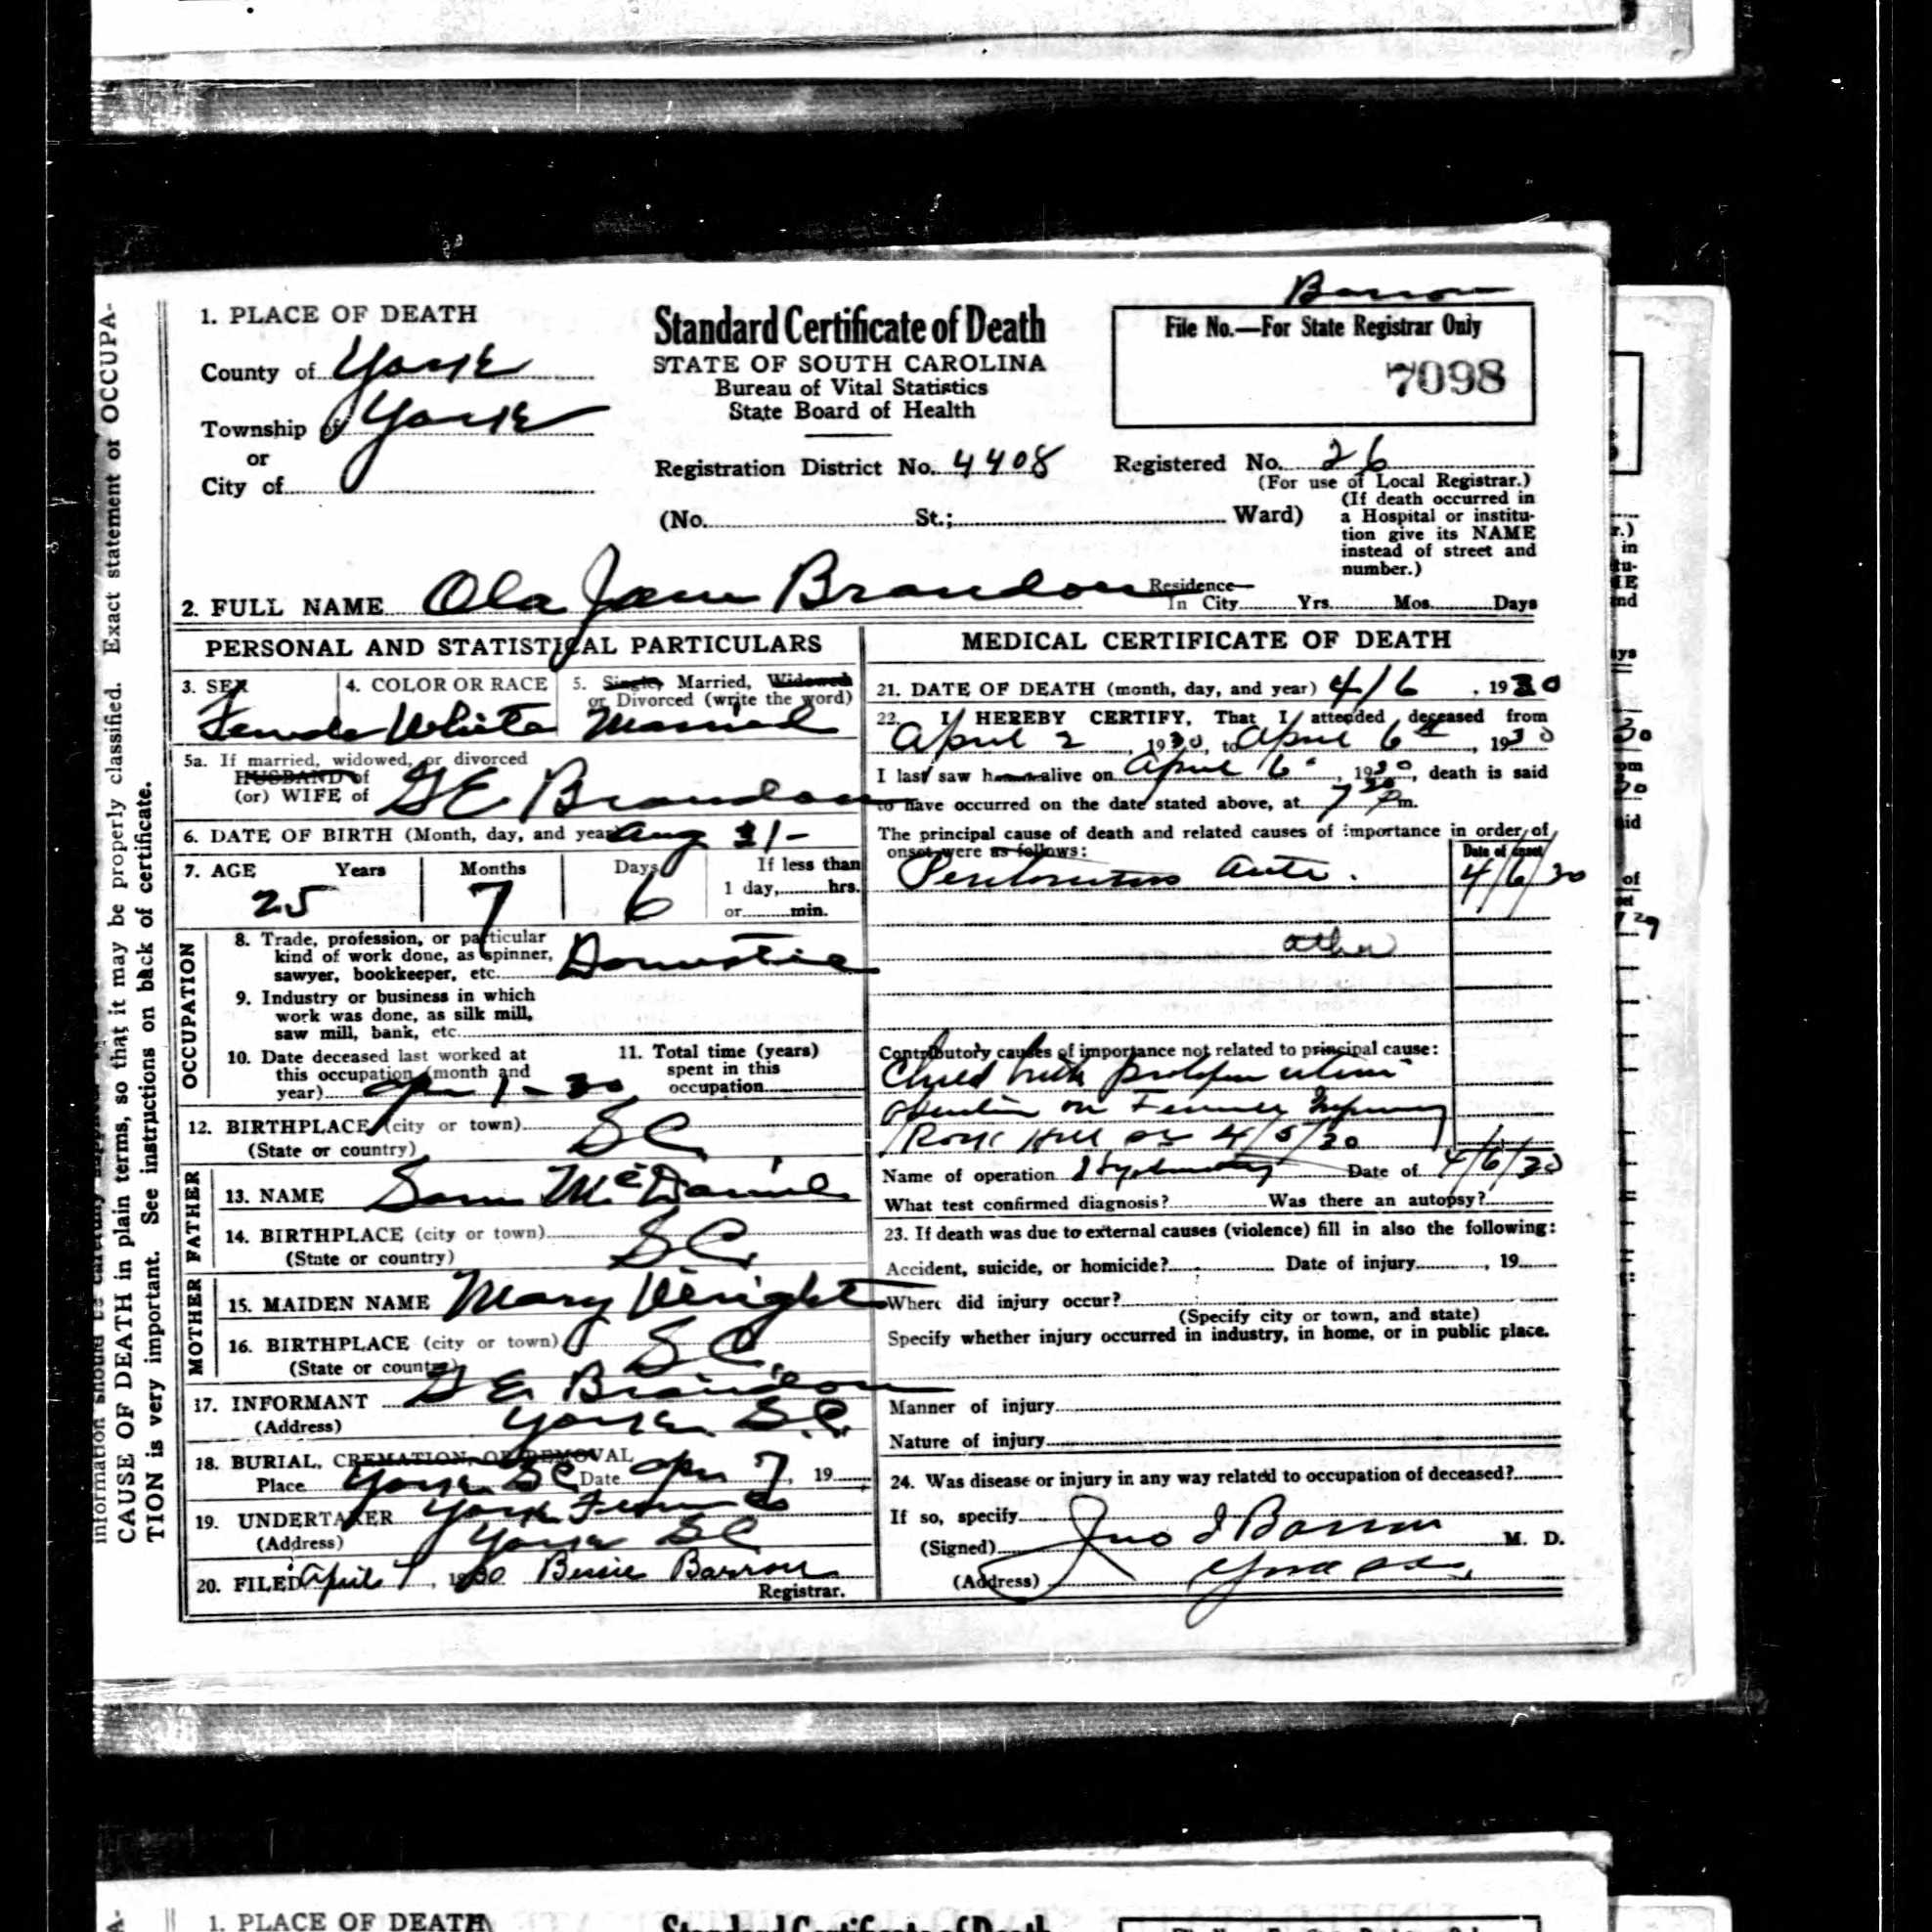 Barron
1. PLACE OF DEATH
County of York
Township of York
or
City of
Standard Certificate of Death
STATE OF SOUTH CAROLINA
Bureau of Vital Statistics
State Board of Health
File No.—For State Registrar Only
7098
Registration District No. 4408
Registered No. 26
(For use of Local Registrar.)
(No. St.; Ward)
(If death occurred in
a Hospital or institu-
tion give its NAME
instead of street and
number.)
2. FULL NAME Ola Jane Brandon
Residence—
In City Yrs. Mos. Days
PERSONAL AND STATISTICAL PARTICULARS
3. SEX
Female
4. COLOR OR RACE
White
5. Single, Married, Widowed
or Divorced (write the word)
Married
5a. If married, widowed, or divorced
HUSBAND of
(or) WIFE of G E Brandon
6. DATE OF BIRTH (Month, day, and year) Aug 31-
7. AGE Years Months Days
25 7 6
If less than
1 day, hrs.
or min.
OCCUPATION
8. Trade, profession, or particular
kind of work done, as spinner,
sawyer, bookkeeper, etc. Domestic
9. Industry or business in which
work was done, as silk mill,
saw mill, bank, etc.
10. Date deceased last worked at
this occupation (month and
year) Apr 1-30
11. Total time (years)
spent in this
occupation
12. BIRTHPLACE (city or town)
(State or country) SC
FATHER
13. NAME Sam McDaniel
14. BIRTHPLACE (city or town)
(State or country) SC
MOTHER
15. MAIDEN NAME Mary Wright
16. BIRTHPLACE (city or town)
(State or country) SC
17. INFORMANT G E Brandon
(Address) York S.C.
18. BURIAL, CREMATION, OR REMOVAL
Place York SC Date Apr 7, 19
19. UNDERTAKER York
(Address) York SC
20. FILED April 7, 1930 Bessie Barron
Registrar.
MEDICAL CERTIFICATE OF DEATH
21. DATE OF DEATH (month, day, and year) 4/6, 1930
22. I HEREBY CERTIFY, That I attended deceased from
April 2, 1930, to April 6th, 1930
I last saw h alive on April 6, 1930, death is said
to have occurred on the date stated above, at 7 30 Pm.
The principal cause of death and related causes of importance in order of
onset were as follows:
Date of onset
4/6/30
other
Contributory causes of importance not related to principal cause:
Child birth
on
Rock Hill SC 4/5/30
Name of operation Date of 4/6/30
What test confirmed diagnosis? Was there an autopsy?
23. If death was due to external causes (violence) fill in also the following:
Accident, suicide, or homicide? Date of injury, 19
Where did injury occur?
(Specify city or town, and state)
Specify whether injury occurred in industry, in home, or in public place.
Manner of injury
Nature of injury
24. Was disease or injury in any way related to occupation of deceased?
If so, specify
(Signed) Jno I Barron M. D.
(Address) York SC
CAUSE OF DEATH in plain terms, so that it may be properly classified. Exact statement of OCCUPA-
TION is very important. See instructions on back of certificate.
1. PLACE OF DEATH
Standard Certificate of Death